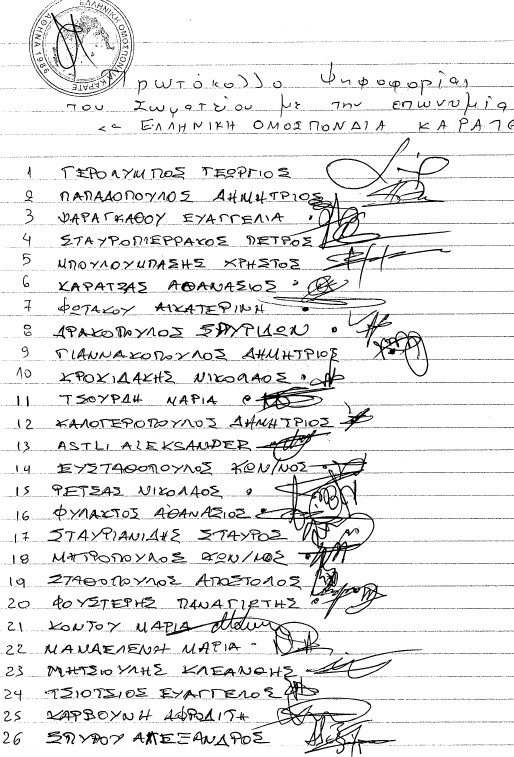 ΕΛΛΗΝΙΚΗ ΟΜΟΣΠΟΝΔΙΑ ΚΑΡΑΤΕ ΑΘΗΝΑ
Πρωτόκολλο Ψηφοφορίας
του Σωματείου με την επωνυμία
<< ΕΛΛΗΝΙΚΗ ΟΜΟΣΠΟΝΔΙΑ ΚΑΡΑΤΕ
1 ΓΕΡΟΛΥΜΠΟΣ ΓΕΩΡΓΙΟΣ
2 ΠΑΠΑΔΟΠΟΥΛΟΣ ΔΗΜΗΤΡΙΟΣ
3 ΦΑΡΑΓΚΑΘΟΥ ΕΥΑΓΓΕΛΙΑ
4 ΣΤΑΥΡΟΠΙΕΡΡΑΚΟΣ ΠΕΤΡΟΣ
5 ΜΠΟΥΛΟΥΜΠΑΣΗΣ ΧΡΗΣΤΟΣ
6 ΚΑΡΑΤΖΑΣ ΑΘΑΝΑΣΙΟΣ
7 ΦΩΤΑΚΟΥ ΑΙΚΑΤΕΡΙΝΗ
8 ΔΡΑΚΟΠΟΥΛΟΣ ΣΠΥΡΙΔΩΝ
9 ΓΙΑΝΝΑΚΟΠΟΥΛΟΣ ΔΗΜΗΤΡΙΟΣ
10 ΚΡΟΚΙΔΑΚΗΣ ΝΙΚΟΛΑΟΣ
11 ΤΣΟΥΡΔΗ ΜΑΡΙΑ
12 ΚΑΛΟΓΕΡΟΠΟΥΛΟΣ ΔΗΜΗΤΡΙΟΣ
13 ASTLI ALEKSANDER
14 ΕΥΣΤΑΘΟΠΟΥΛΟΣ ΚΩΝ/ΝΟΣ
15 ΡΕΤΣΑΣ ΝΙΚΟΛΑΟΣ
16 ΦΥΛΑΚΤΟΣ ΑΘΑΝΑΣΙΟΣ
17 ΣΤΑΥΡΙΑΝΙΔΗΣ ΣΤΑΥΡΟΣ
18 ΜΗΤΡΟΠΟΥΛΟΣ ΚΩΝ/ΝΟΣ
19 ΣΤΑΘΟΠΟΥΛΟΣ ΑΠΟΣΤΟΛΟΣ
20 ΦΟΥΣΤΕΡΗΣ ΠΑΝΑΓΙΩΤΗΣ
21 ΚΟΝΤΟΥ ΜΑΡΙΑ
22 ΜΑΝΔΕΛΕΝΗ ΜΑΡΙΑ
23 ΜΗΤΣΙΟΥΛΗΣ ΚΛΕΑΝΘΗΣ
24 ΤΣΙΟΤΣΙΟΣ ΕΥΑΓΓΕΛΟΣ
25 ΚΑΡΒΟΥΝΗ ΑΦΡΟΔΙΤΗ
26 ΣΠΥΡΟΥ ΑΛΕΞΑΝΔΡΟΣ